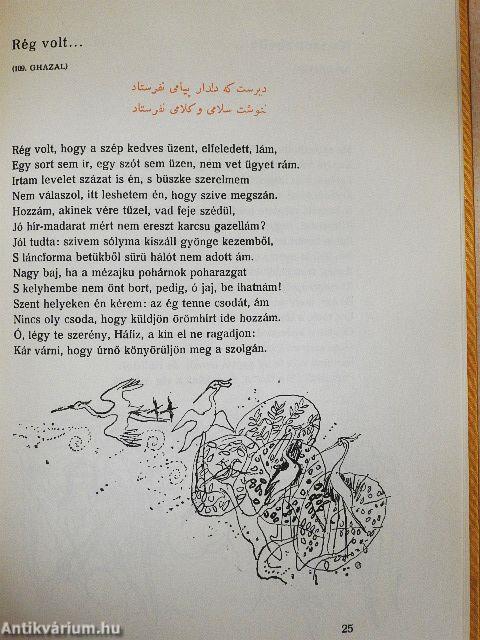 Rég volt...
(109. GHAZAL)
دیرست که دلدار پیامی نفرستاد
ننوشت سلامی و کلامی نفرستاد
Rég volt, hogy a szép kedves üzent, elfeledett, lám,
Egy sort sem ír, egy szót sem üzen, nem vet ügyet rám.
Irtam levelet százat is én, s büszke szerelmem
Nem válaszol, itt leshetem én, hogy szive megszán.
Hozzám, akinek vére tüzel, vad feje szédül,
Jó hír-madarat mért nem ereszt karcsu gazellám?
Jól tudta: szivem sólyma kiszáll gyönge kezemből,
S láncforma betükből sürü hálót nem adott ám.
Nagy baj, ha a mézajku pohárnok poharazgat
S kelyhembe nem önt bort, pedig, ó jaj, be ihatnám!
Szent helyeken én kérem: az ég tenne csodát, ám
Nincs oly csoda, hogy küldjön örömhirt ide hozzám.
Ó, légy te szerény, Háfiz, a kin el ne ragadjon:
Kár várni, hogy úrnő könyörüljön meg a szolgán.
25
Antikvárium.hu